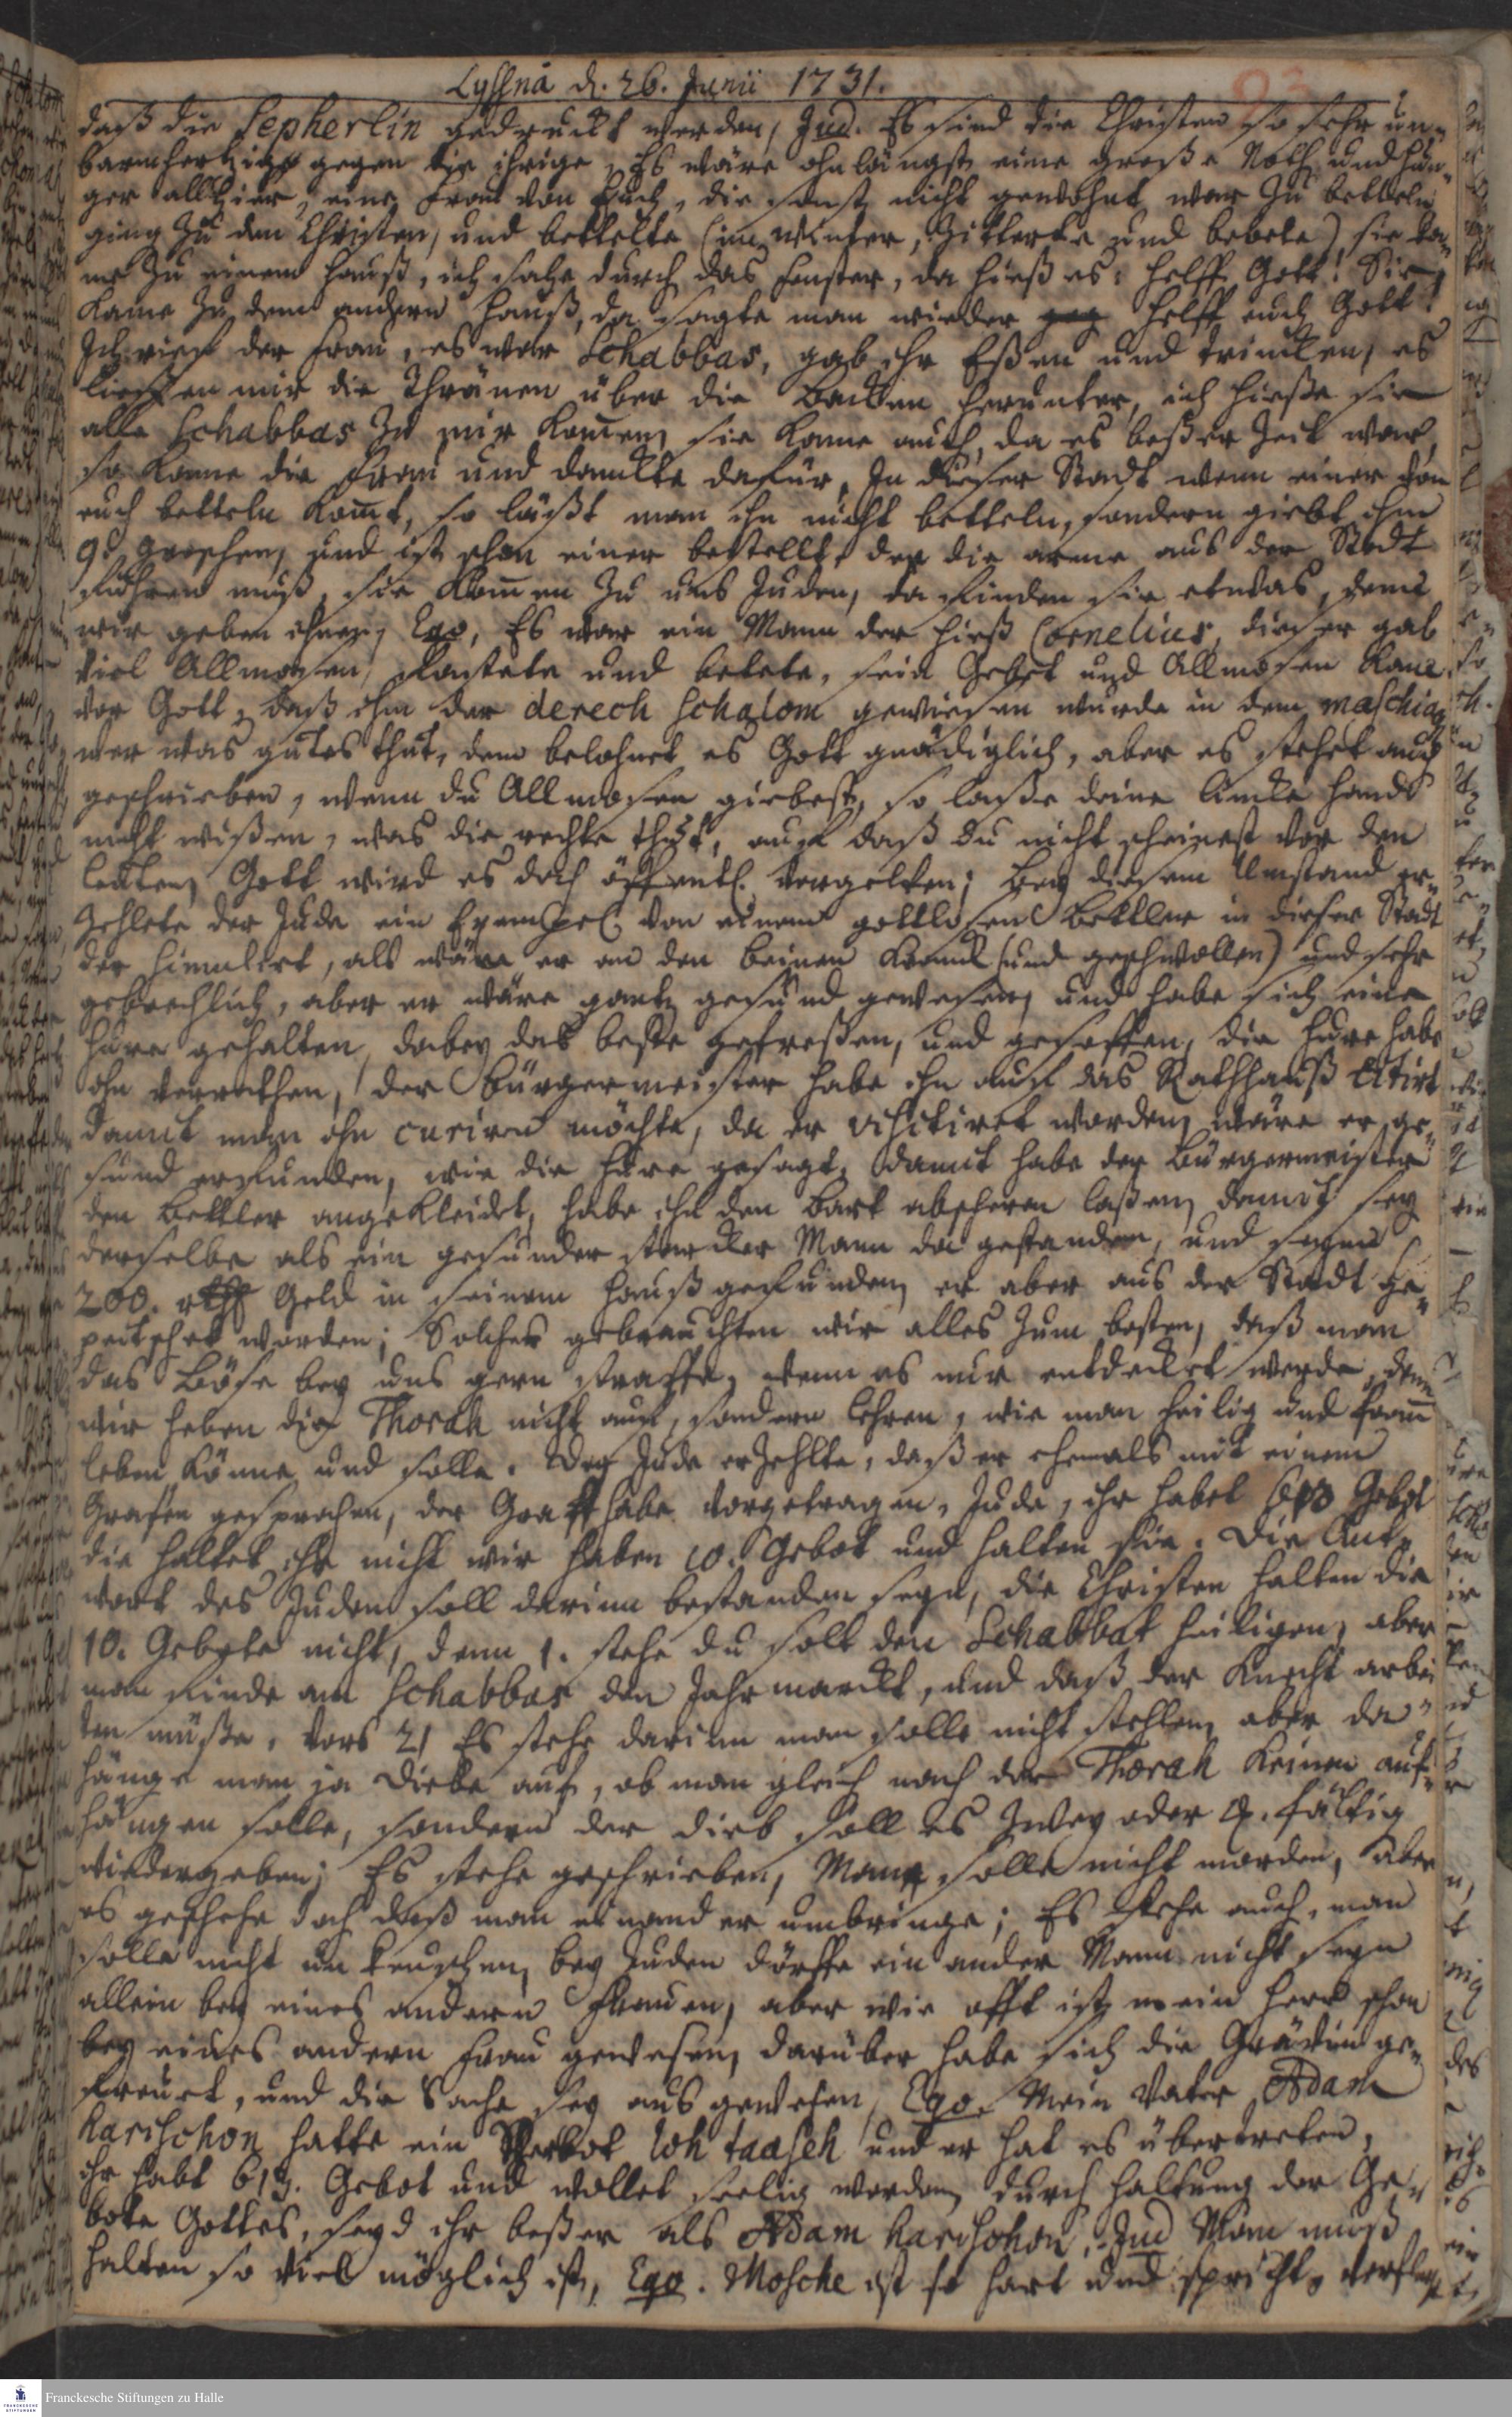 Lyssna d. 26. Junii 1731.
93
daß die Sepherlin gedruckt werden, Jud. Es sind die Christen so sehr un-
barmhertzig gegen die ihrige, Es wäre ohnlängst eine große Noth und Hun-
ger allhier, eine Frau von Euch, die sonst nicht gewohnt war zu betteln
ging zu den Christen, und bettelte (im Winter, zitterte und bebete) sie ka-
me zu einem Hauß, ich sahe durch das Fenster, da hieß es: Helff Gott! Sie
kame zu dem andern Hauß, da sagte man wieder Helff euch Gott!
Ich rieff der Frau, es war Schabbas, gab ihr Eßen und trincken, es
lieffen mir die Thränen über die Backen herunter, ich hieße sie
alle Schabbas zu mir kom̄en, sie kame auch, da es beßer Zeit war,
so kame die Frau und danckte dafür, In dieser Stadt wenn einer von
euch betteln kom̄t, so läßt man ihn nicht betteln, sondern giebt ihm
Groschen, und ist schon einer bestellt, der die arme aus der Stadt
führen muß, sie kom̄en zu uns Juden, da finden sie etwas, denn
wir geben ihnen, Ego, Es war ein Mann der hieß Cornelius, dieser gab
viel Allmosen, fastete und betete, sein Gebet und Allmosen kame
vor Gott, daß ihm der derech schalom gewiesen wurde in dem maschiach
wer was gutes thut, dem belohnet es Gott gnädiglich, aber es stehet auch
geschrieben, wenn du Allmosen giebest, so laße deine lincke Hand
nicht wißen, was die rechte thut, auch daß du nicht scheinest vor den
Leuten, Gott wird es doch öffentl. vergelten; Bey diesem Umstand er-
zehlete der Jude ein Exempel von einem gottlosen Bettler in dieser Stadt
der simulirt, als wäre er an den Beinen kranck (und geschwollen) und sehr
gebrechlich, aber er wäre gantz gesund gewesen, und habe sich eine
Hure gehalten, dabey das beste gefreßen, und gesoffen, die Hure habe
ihn verrathen, der Bürgermeister habe ihn auf das Rathhauß citirt
damit man ihn curiren möchte, da er visitiret worden, wäre er ge-
sund erfunden, wie die Hure gesagt, damit habe der Bürgermeister
den Bettler angekleidet, habe ihm den Bart abscheren laßen, damit sey
derselbe als ein gesunder starcker Mann da gestanden, und seyen
200. rthl Geld in seinem Hauß gefunden, er aber aus der Stadt ge-
peitschet worden; Solches gebrauchten wir alles zum besten, daß man
das Böse bey uns gern straffe, wenn es nur entdecket werde, denn
wir heben die Thorah nicht auf, sondern lehren, wie man heilig und from̄
leben könne und solle. Der Jude erzehlte, daß er ehemals mit einem
Grafen gesprochen, der Graff habe vorgetragen, Jude, ihr habet 613 Gebot
die haltet ihr nicht wir haben 10. Gebot und halten sie. Die Ant-
wort des Juden soll darinn bestanden seyn, die Christen halten die
10. Gebote nicht, denn 1. stehe du solt den Schabbat heiligen, aber
man finde am Schabbas den Jahrmarckt, und daß der Knecht arbei-
ten müße, vors 2) Es stehe darinn man solle nicht stehlen, aber da
hänge man ja Diebe auf, ob man gleich nach der Thorah keinen auf-
hängen solle, sondern der Dieb soll es zwey oder 4. fältig
wiedergeben; Es stehe geschrieben, Man solle nicht morden, aber
es geschehe doch daß man einander umbringe; Es stehe auch, man
solle nicht un keuschen, bey Juden dörffe ein ander Mann nicht seyn
allein bey eines andern Frauen, aber wie offt ist mein Herr schon
bey eines andern Frau gewesen, darüber habe sich die Gräfin ge-
freuet, und die Sache sey aus gewesen, Ego. Mein Vater Adam
harischon hatte ein Verbot loh taaseh und er hat es übertreten,
ihr habt 613. Gebot und wollet seelig werden durch Haltung der Ge-
bote Gottes, seyd ihr beßer als Adam harischon, Jud Man muß
halten so viel möglich ist, Ego. Mosche ist so hart und spricht,
Franckesche Stiftungen zu Halle